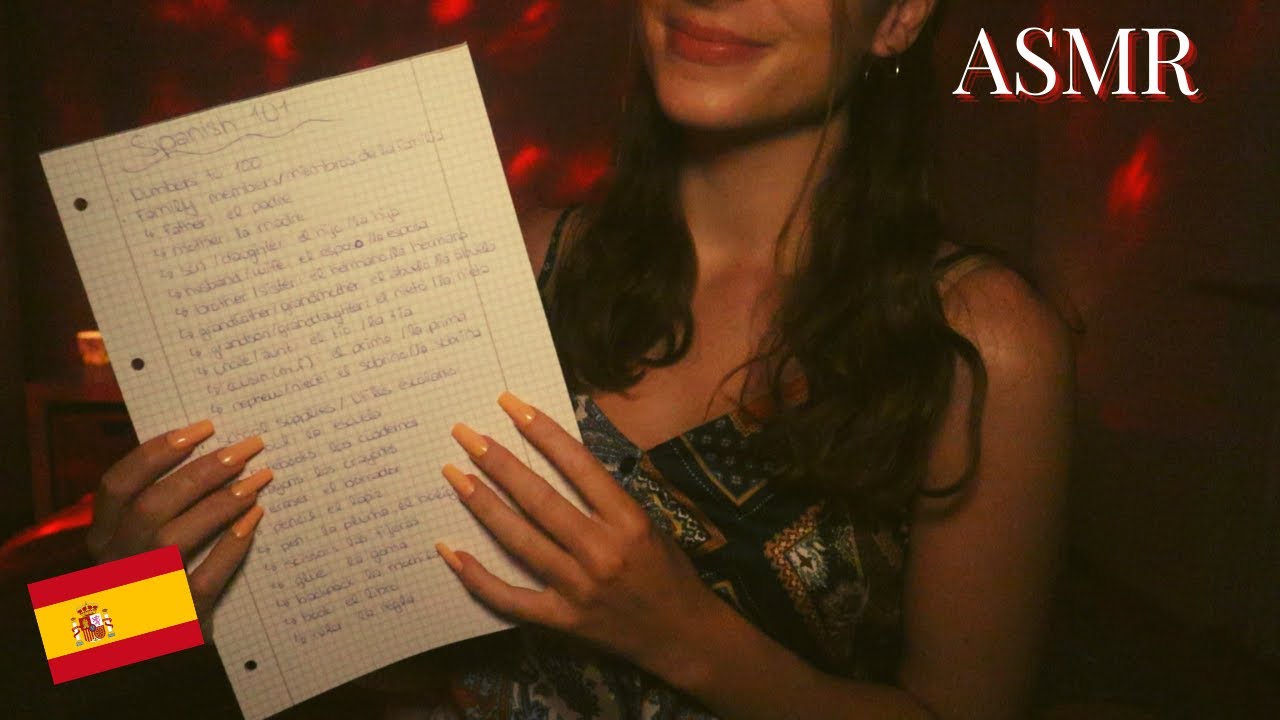 ASMR
Spanish 101
numbers to 100
family members/miembros de la familia
↳ father: el padre
↳ mother: la madre
↳ son/daughter: el hijo/la hija
↳ husband/wife: el esposo/la esposa
↳ brother/sister: el hermano/la hermana
↳ grandfather/grandmother: el abuelo/la abuela
↳ grandson/granddaughter: el nieto/la nieta
↳ uncle/aunt: el tío/la tía
↳ cousin (m/f): el primo/la prima
↳ nephew/niece: el sobrino/la sobrina
school supplies/ escolares
la escuela
los cuadernos
los crayones
eraser: el borrador
pencil: el lapiz
↳ pen: la pluma/el
↳ scissors: las tijeras
↳ glue: la goma
↳ backpack: la
↳ book: el libro
↳ la regla